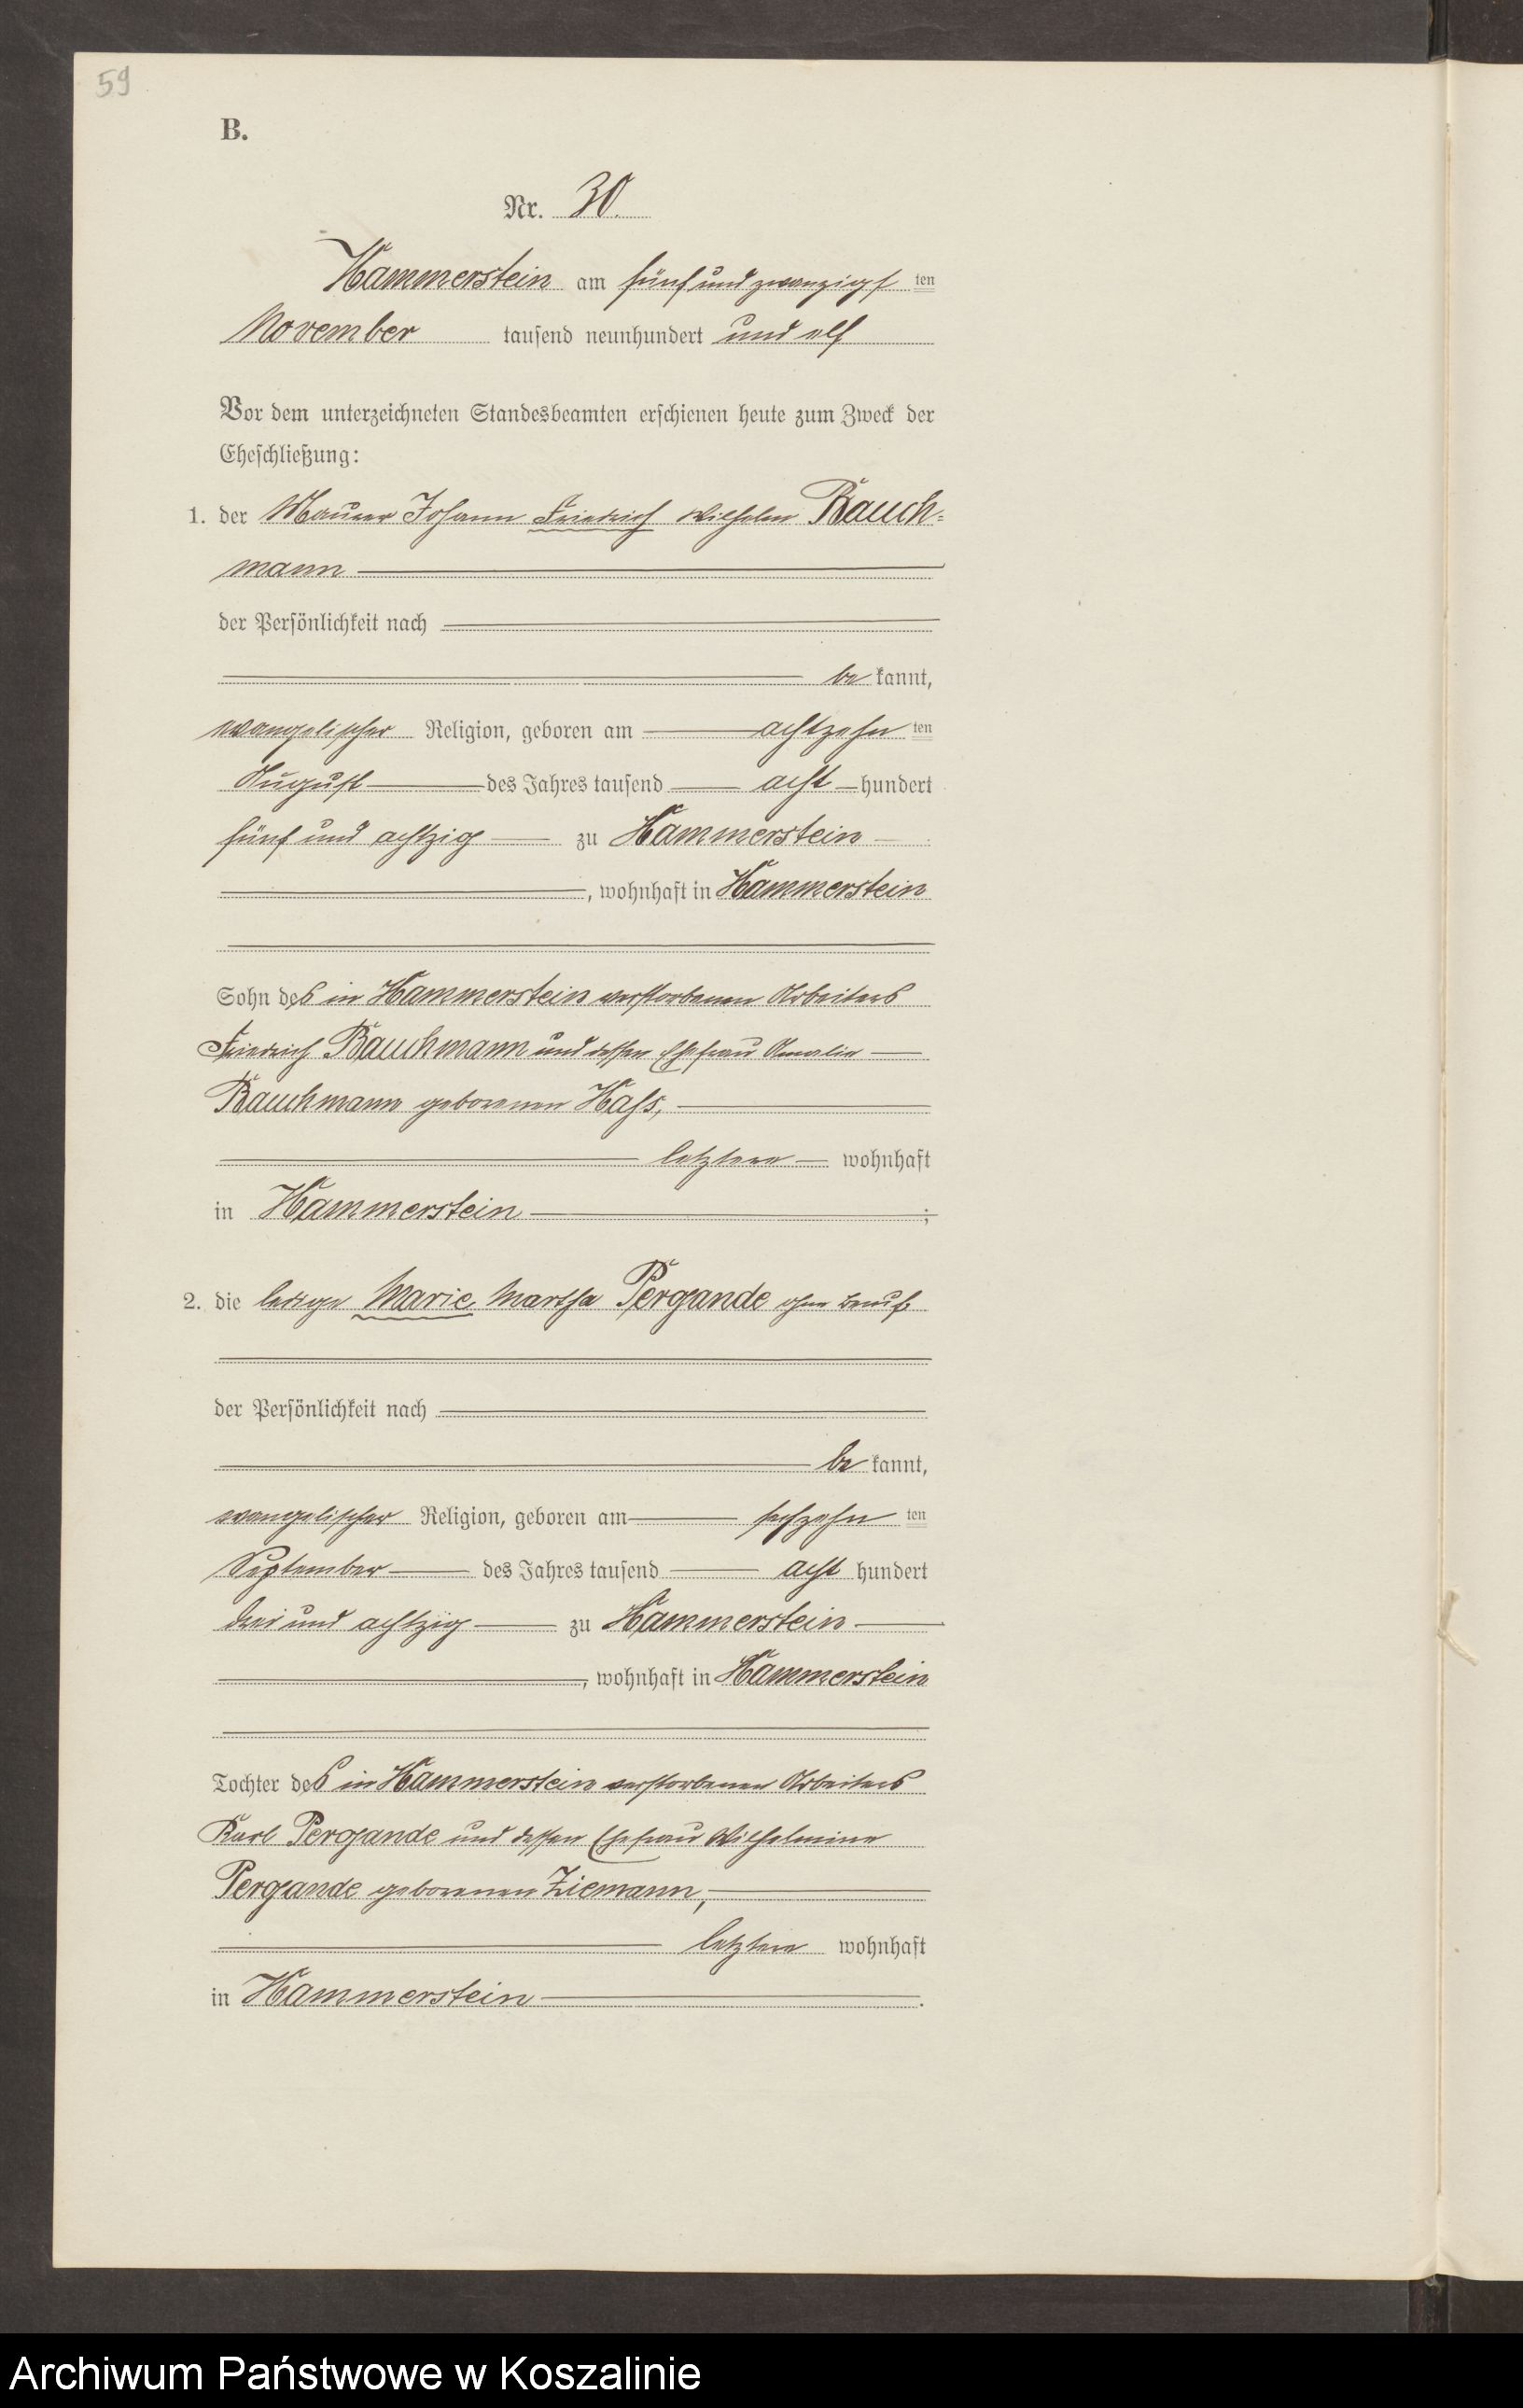 59
B.
Nr. 30.
Hammerstein am fünfundzwanzigsten
November tausend neunhundert und elf
Vor dem unterzeichneten Standesbeamten erschienen heute zum Zweck der
Eheschließung:
1. der Maurer Johann Friedrich Wilhelm Bauch=
mann
der Persönlichkeit nach
bekannt,
evangelischer Religion, geboren am achtzehnten
August des Jahres tausend acht hundert
fünf und achtzig zu Hammerstein
, wohnhaft in Hammerstein
Sohn des in Hammerstein verstorbenen Arbeiters
Friedrich Bauchmann und dessen Ehefrau Amalie
Bauchmann geborenen Hass,
letztere wohnhaft
in Hammerstein ;
2. die ledige Marie Martha Pergande ohne Beruf
der Persönlichkeit nach
bekannt,
evangelischer Religion, geboren am sechzehnten
September des Jahres tausend acht hundert
drei und achtzig zu Hammerstein
, wohnhaft in Hammerstein
Tochter des in Hammerstein verstorbenen Arbeiters
Karl Pergande und dessen Ehefrau Wilhelmine
Pergande geborenen Ziemann,
letztere wohnhaft
in Hammerstein .
Archiwum Państwowe w Koszalinie